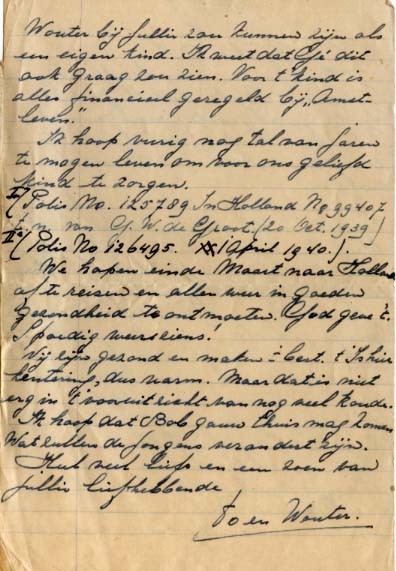 Wouter bij jullie zou kunnen zijn als
een eigen kind. Ik weet dat Gé dit
ook graag zou zien. Voor 't kind is
alles financieel geregeld bij "Amst-
leven."
Ik hoop vurig nog tal van jaren
te mogen leven om voor ons geliefd
kind te zorgen.
I (Polis No. 125789 In Holland No 99407
t.n. van G. W. de Groot. (20 Oct. 1939)
IIe (Polis No 126495. 1 April 1940.).
We hopen einde Maart naar Holland
af te reizen en allen weer in goeden
gezondheid te ontmoeten. God geve 't.
Spoedig weerziens!
Wij zijn gezond en maken 't best. 't Is hier
kentering, dus warm. Maar dat is niet
erg in 't vooruitzicht van nog veel koude.
Ik hoop dat Bob gauw thuis mag komen
Wat zullen de jongens veranderd zijn.
Heel veel liefs en een zoen van
jullie liefhebbende,
To en Wouter.